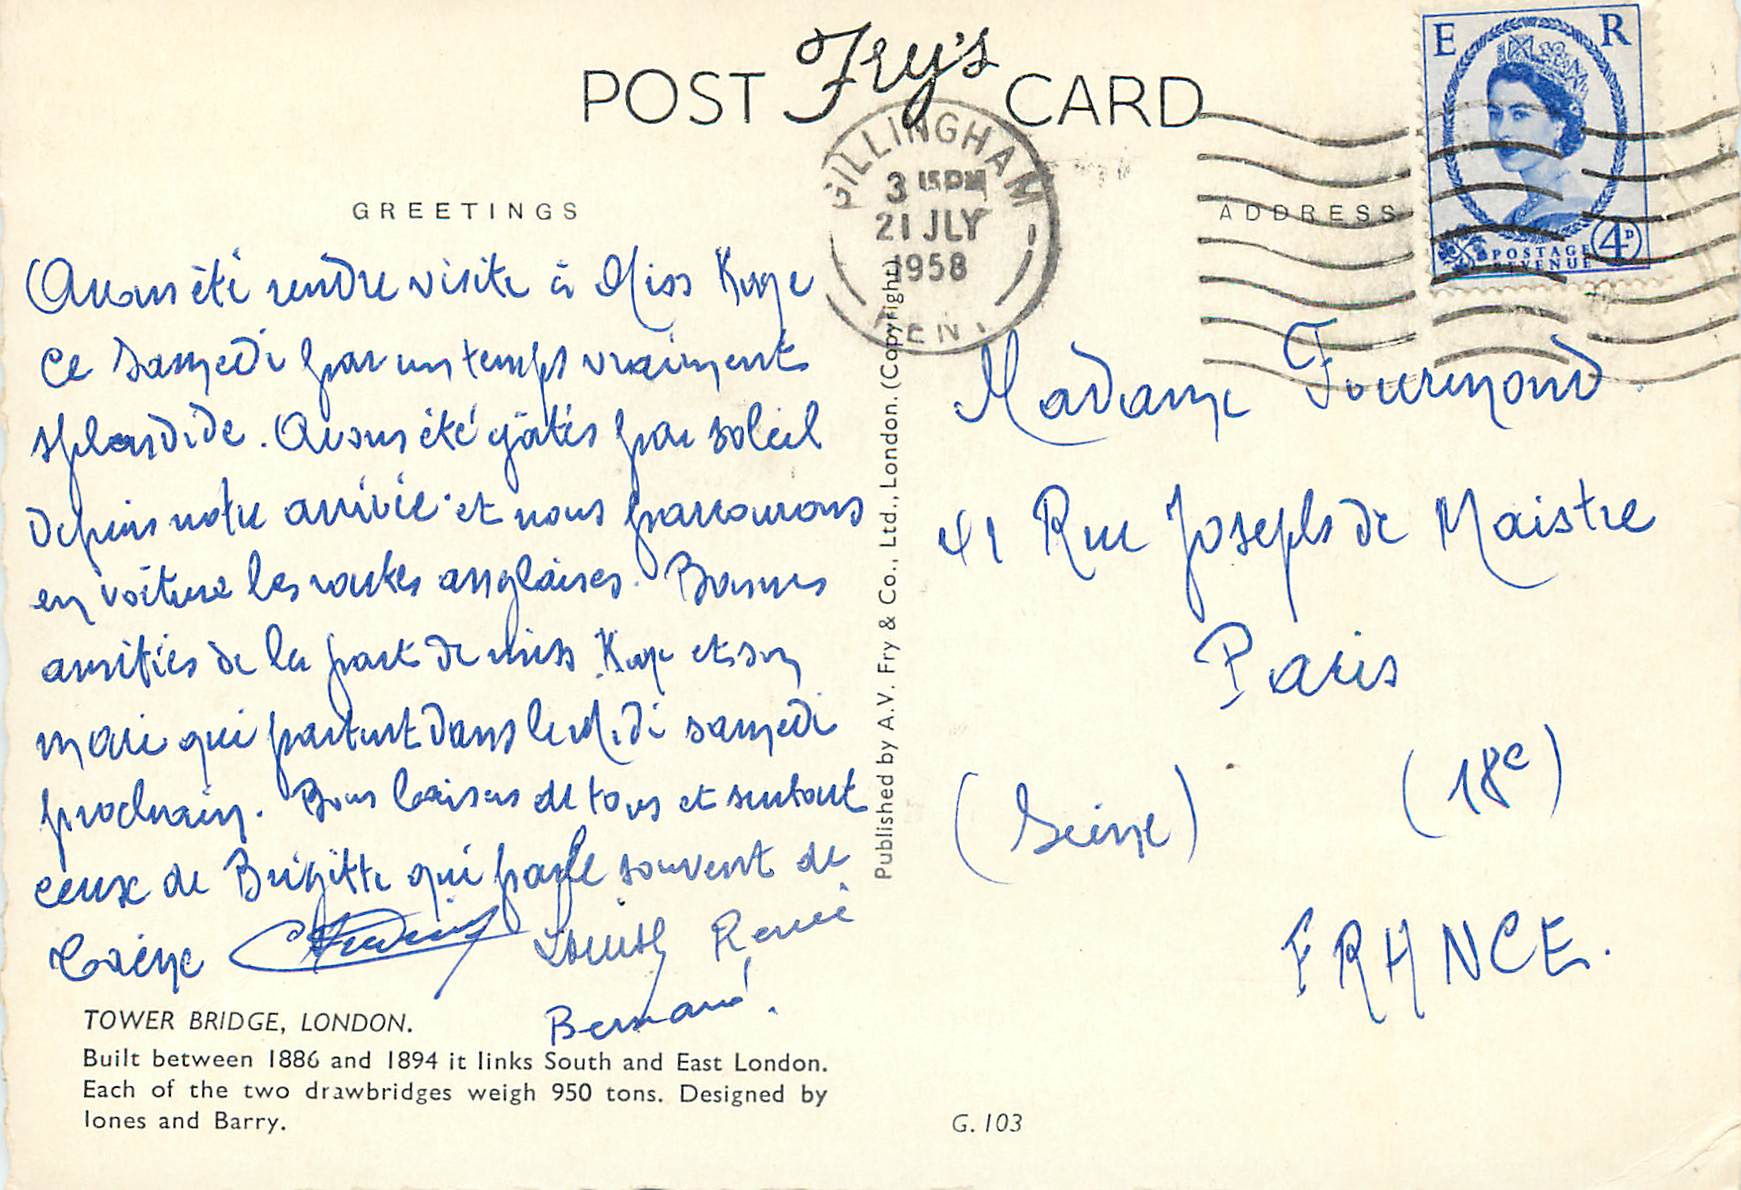 POST Fry's CARD
GILLINGHAM
3 15PM
21 JLY
1958
KENT
E R
POSTAGE
REVENUE
4D
GREETINGS
ADDRESS
Avons été rendre visite à Miss Kaye
ce samedi par un temps vraiment
splendide. Avons été gâtés par soleil
depuis notre arrivée et nous parcourons
en voiture les routes anglaises. Bonnes
amitiés de la part de miss Kaye et son
mari qui partent dans le Midi samedi
prochain. Bons baisers de tous et surtout
ceux de Brigitte qui parle souvent de
Renée
Bernard.
Madame Fourmond
41 Rue Joseph de Maistre
Paris
(Seine) (18e)
FRANCE.
Published by A.V. Fry & Co., Ltd., London. (Copyright)
TOWER BRIDGE, LONDON.
Built between 1886 and 1894 it links South and East London.
Each of the two drawbridges weigh 950 tons. Designed by
Iones and Barry.
G. 103